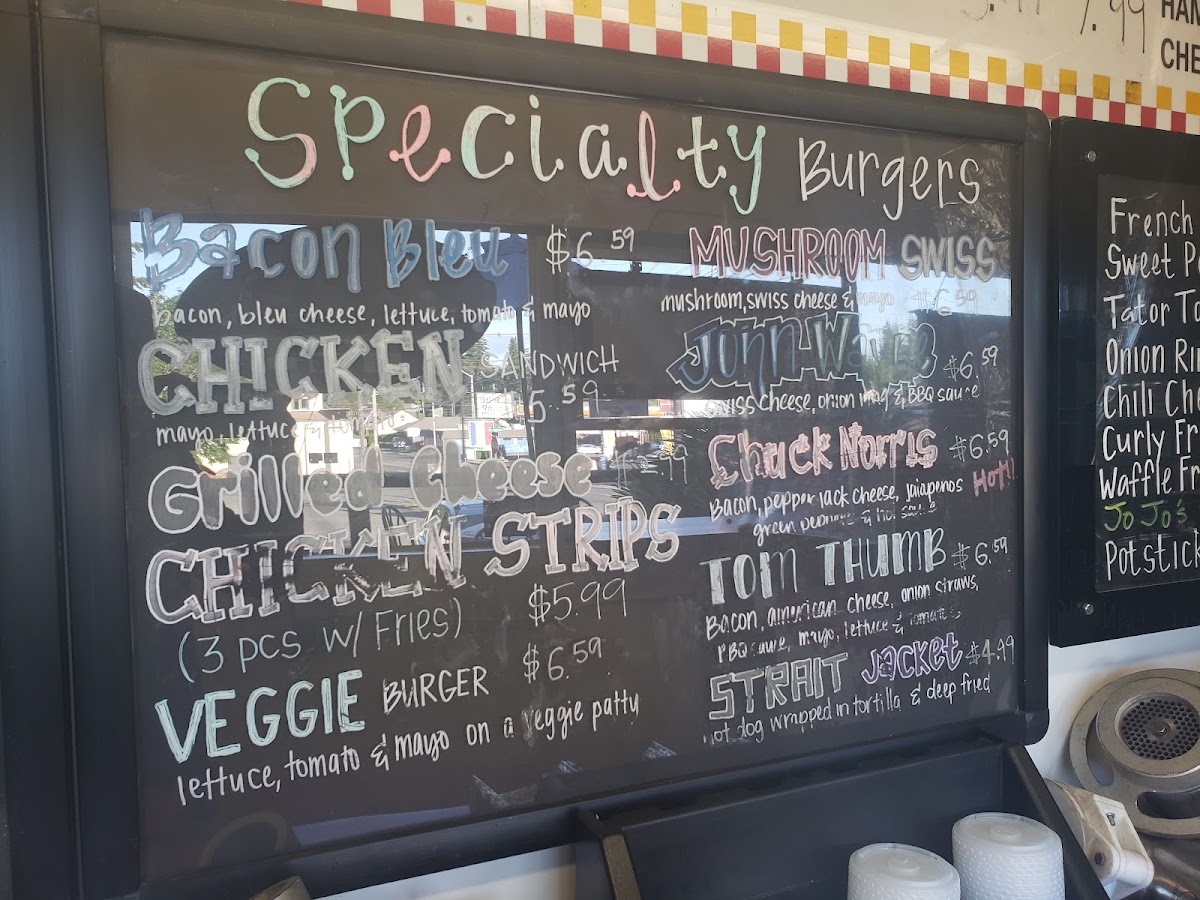 Specialty Burgers
Bacon Bleu $6.59
bacon, bleu cheese, lettuce, tomato & mayo
CHICKEN SANDWICH
5.59
mayo, lettuce & tomato
Grilled Cheese
CHICKEN STRIPS
(3 pcs w/ Fries) $5.99
VEGGIE BURGER $6.59
lettuce, tomato & mayo on a veggie patty
MUSHROOM SWISS
mushroom, swiss cheese & mayo $6.59
John Wayne $6.59
swiss cheese, onion ring & BBQ sauce
Chuck Norris $6.59
Bacon, pepper jack cheese, jalapenos HOT!!
green peppers & hot sauce
TOM THUMB $6.59
Bacon, american cheese, onion straws,
BBQ sauce, mayo, lettuce & tomato
STRAIT Jacket $4.99
hot dog wrapped in tortilla & deep fried
7.99
French
Sweet
Onion
Chili
Curly
Waffle
Jo Jo's